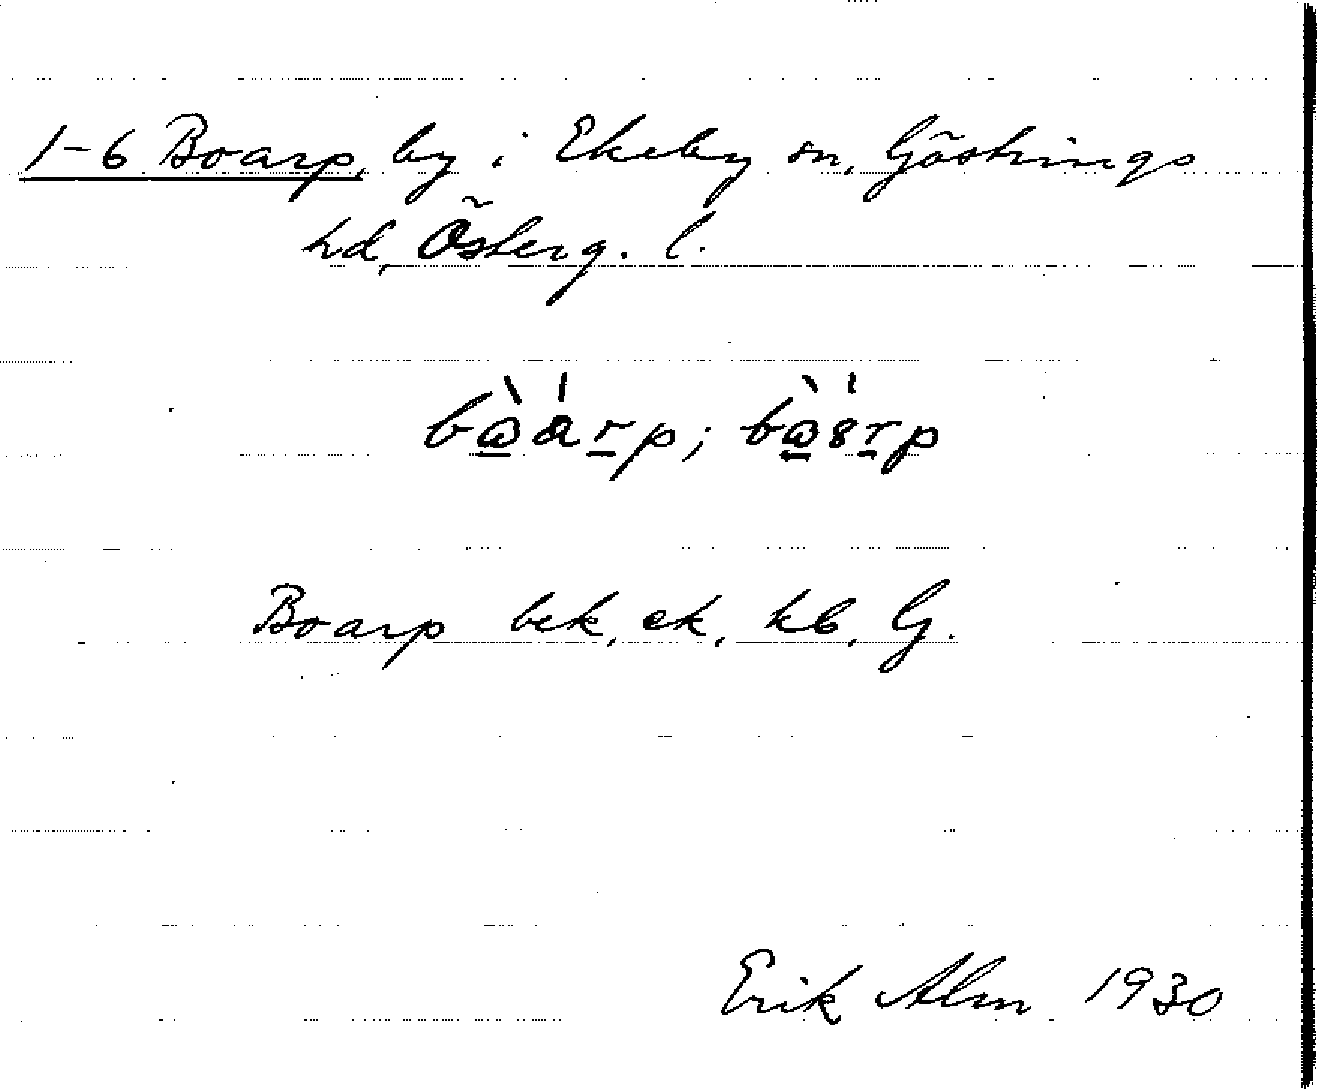 1-6 Boarp, by i Ekeby sn, Göstrings
hd, Österg. l.
Boarp bek, ek, kb, G.
Erik Alm 1930